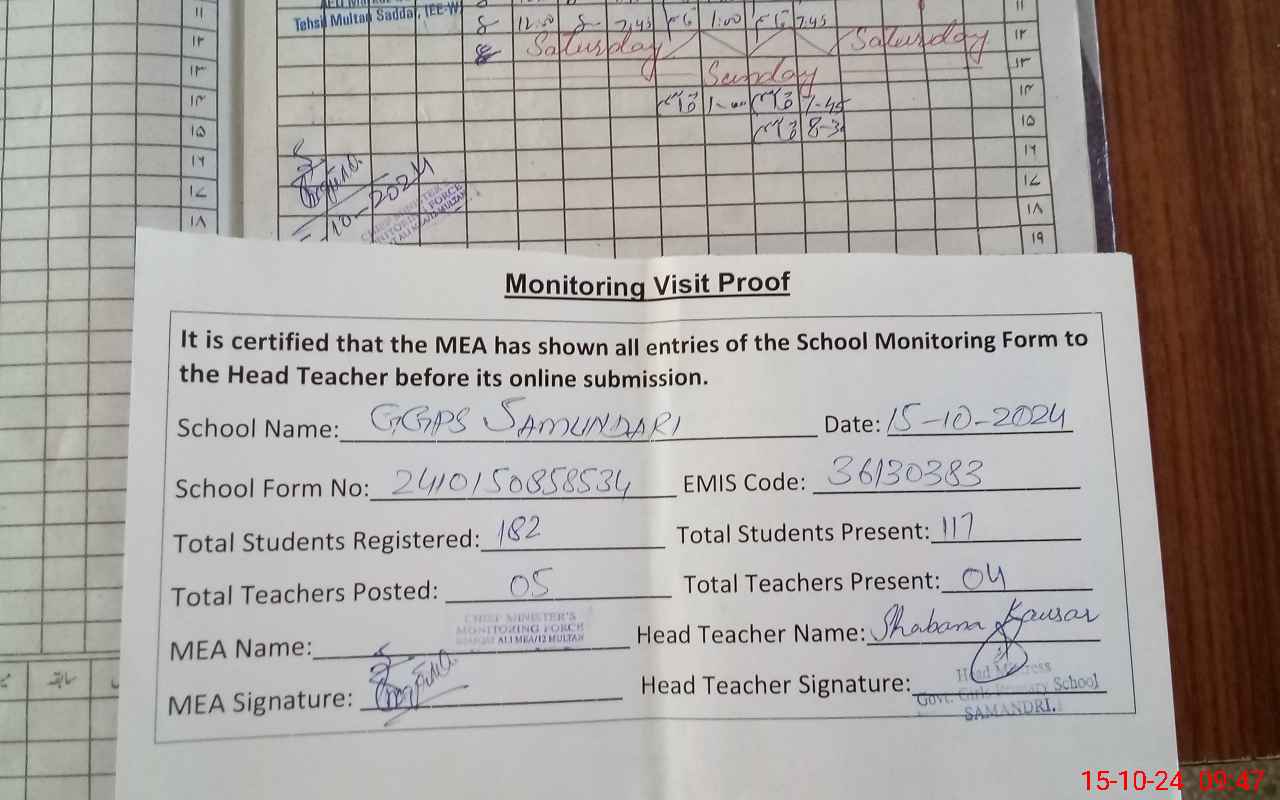 Tehsil Multan Saddar, (EE-W)
١١ ١١
8 12:00 8 7:45 1:00 7:45
١٢ Saturday Saturday ١٢
١٣ Sunday ١٣
١٤ 1-00 7-45 ١٤
١٥ 8-3 ١٥
١٦ ١٦
١٧ ١٧
10-2024
CHIEF MINISTER
MONITORING FORCE
ALI MEA/12 MULTAN
١٨ ١٨
١٩
Monitoring Visit Proof
It is certified that the MEA has shown all entries of the School Monitoring Form to
the Head Teacher before its online submission.
School Name: GGPS SAMUNDARI Date: 15-10-2024
School Form No: 2410150858534 EMIS Code: 36130383
Total Students Registered: 182 Total Students Present: 117
Total Teachers Posted: 05 Total Teachers Present: 04
CHIEF MINISTER'S
MONITORING FORCE
ALI MEA/12 MULTAN
MEA Name: Head Teacher Name: Shabana Kausar
MEA Signature: Head Teacher Signature:
Head Mistress
Govt. Girls Primary School
SAMANDRI.
سابقہ
15-10-24 09:47